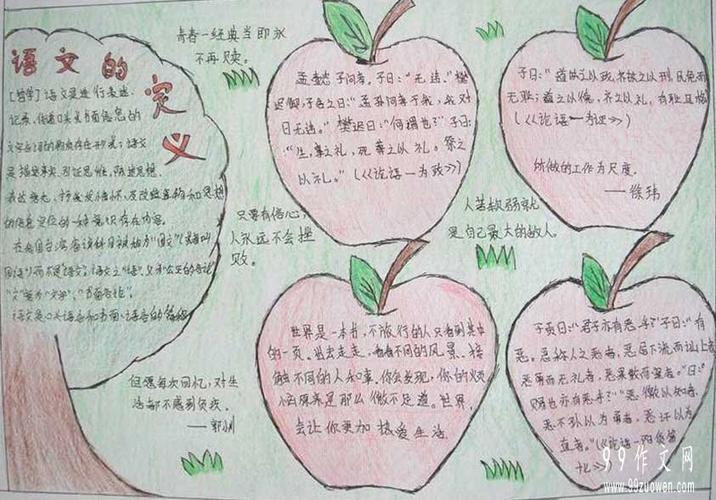 语文的定义
[哲学]语文是进行表述、
记录、传递口头或书面信息的
文字言词的物质存在形式;语文
是描述事实、引证思维、陈述思想、
在我国台湾
语文是口头语言和书面语言的
青春一经典当即永
不再赎。
孟懿子问孝。子曰:“无违。”樊
迟御,子告之曰:“孟孙问于我,我对
曰无违。”樊迟曰:“何谓也?”子曰:
“生,事之以礼,死葬之以礼,祭之
以礼。”(《论语一为政》)
子曰:“道之以政,齐之以刑,民免而
无耻;道之以德,齐之以礼,有耻且格
(《论语一为政》)
所做的工作为尺度。
——徐玮
只要有信心,
人永远不会挫
败。
人若软弱就
是自己最大的敌人。
世界是一本书,不旅行的人只看到其中
的一页。出去走走,看看不同的风景、接
触不同的人和事,你会发现,你的烦
恼原来是那么微不足道。世界,
会让你更加热爱生活
但愿每次回忆,对生
活都不感到负疚。
——郭小川
子贡曰:“君子亦有恶乎?”子曰:“有
恶。恶称人之恶者,恶居下流而讪上者
恶勇而无礼者,恶果敢而窒者。”曰:“
赐也亦有恶乎?”“恶徼以为知者,
恶不孙以为勇者,恶讦以为
直者。”(《论语一阳货第
99作文网
www.99zuowen.com